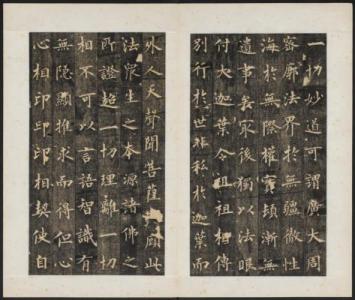 一切妙道可謂廣大周
密廓法界於無疆徹性
海於無際權實頓漸無
遺事矣最後獨以法眼
付大迦葉令祖祖相傳
別行於世非私於迦葉而
外人天聲聞菩薩也顧此
法眾生之本源諸佛之
所證超一切理離一切
相不可以言語智識有
無隱顯推求而得但心
心相印印印相契使自